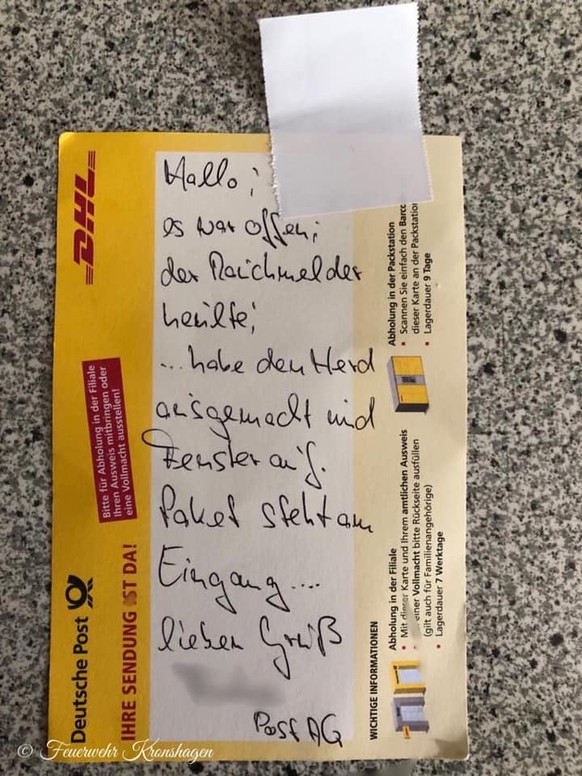 Hallo;
es war offen;
der Rauchmelder
heulte;
... habe den Herd
ausgemacht und
Fenster auf.
Paket steht am
Eingang....
lieben Gruß
Post AG
DHL
Bitte für Abholung in der Filiale
Ihren Ausweis mitbringen oder
eine Vollmacht ausstellen!
Deutsche Post
IHRE SENDUNG IST DA!
WICHTIGE INFORMATIONEN
Abholung in der Filiale
• Mit dieser Karte und Ihrem amtlichen Ausweis
• einer Vollmacht bitte Rückseite ausfüllen
(gilt auch für Familienangehörige)
• Lagerdauer 7 Werktage
Abholung in der Packstation
• Scannen Sie einfach den Barco
dieser Karte an der Packstation
• Lagerdauer 9 Tage
© Feuerwehr Kronshagen